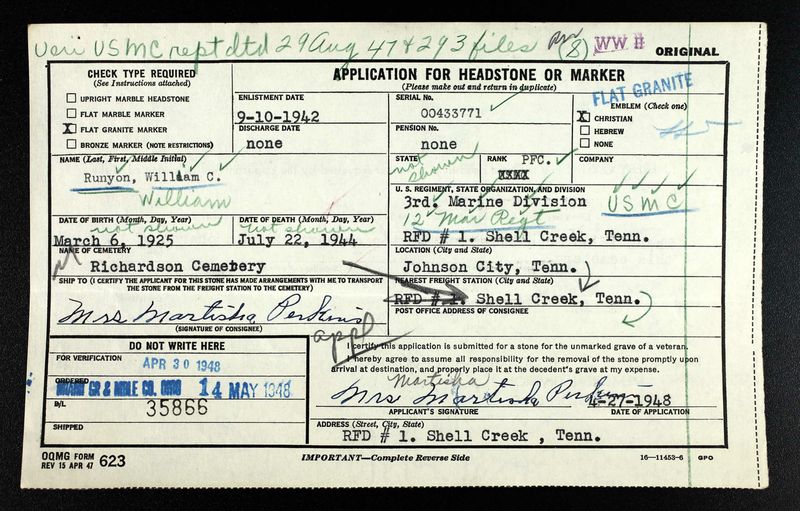 Veri USMC rept dtd 29 Aug 47 & 293 files (8) WW II
ORIGINAL
CHECK TYPE REQUIRED
(See Instructions attached)
UPRIGHT MARBLE HEADSTONE
FLAT MARBLE MARKER
X FLAT GRANITE MARKER
BRONZE MARKER (NOTE RESTRICTIONS)
APPLICATION FOR HEADSTONE OR MARKER
(Please make out and return in duplicate)
FLAT GRANITE
ENLISTMENT DATE
9-10-1942
DISCHARGE DATE
none
SERIAL No.
00433771
PENSION No.
none
EMBLEM (Check one)
X CHRISTIAN
HEBREW
NONE
NAME (Last, First, Middle Initial)
Runyon, William C.
William
STATE
not shown
RANK PFC.
XXXX
COMPANY
U. S. REGIMENT, STATE ORGANIZATION, AND DIVISION
3rd. Marine Division USMC
12 Mar Regt
DATE OF BIRTH (Month, Day, Year)
not shown
March 6, 1925
DATE OF DEATH (Month, Day, Year)
not shown
July 22, 1944
RFD # 1. Shell Creek, Tenn.
NAME OF CEMETERY
Richardson Cemetery
LOCATION (City and State)
Johnson City, Tenn.
SHIP TO (I CERTIFY THE APPLICANT FOR THIS STONE HAS MADE ARRANGEMENTS WITH ME TO TRANSPORT
THE STONE FROM THE FREIGHT STATION TO THE CEMETERY)
NEAREST FREIGHT STATION (City and State)
RFD # 1. Shell Creek, Tenn.
Mrs Martisha Perkins
(SIGNATURE OF CONSIGNEE)
POST OFFICE ADDRESS OF CONSIGNEE
appl
DO NOT WRITE HERE
FOR VERIFICATION
APR 30 1948
ORDERED
14 MAY 1948
B/L
35866
SHIPPED
I certify this application is submitted for a stone for the unmarked grave of a veteran.
I hereby agree to assume all responsibility for the removal of the stone promptly upon
arrival at destination, and properly place it at the decedent's grave at my expense.
Martisha
Mrs Martisha Perkins 4-27-1948
APPLICANT'S SIGNATURE DATE OF APPLICATION
ADDRESS (Street, City, State)
RFD # 1. Shell Creek , Tenn.
OQMG FORM
REV 15 APR 47 623
IMPORTANT—Complete Reverse Side
16—11453-6 GPO